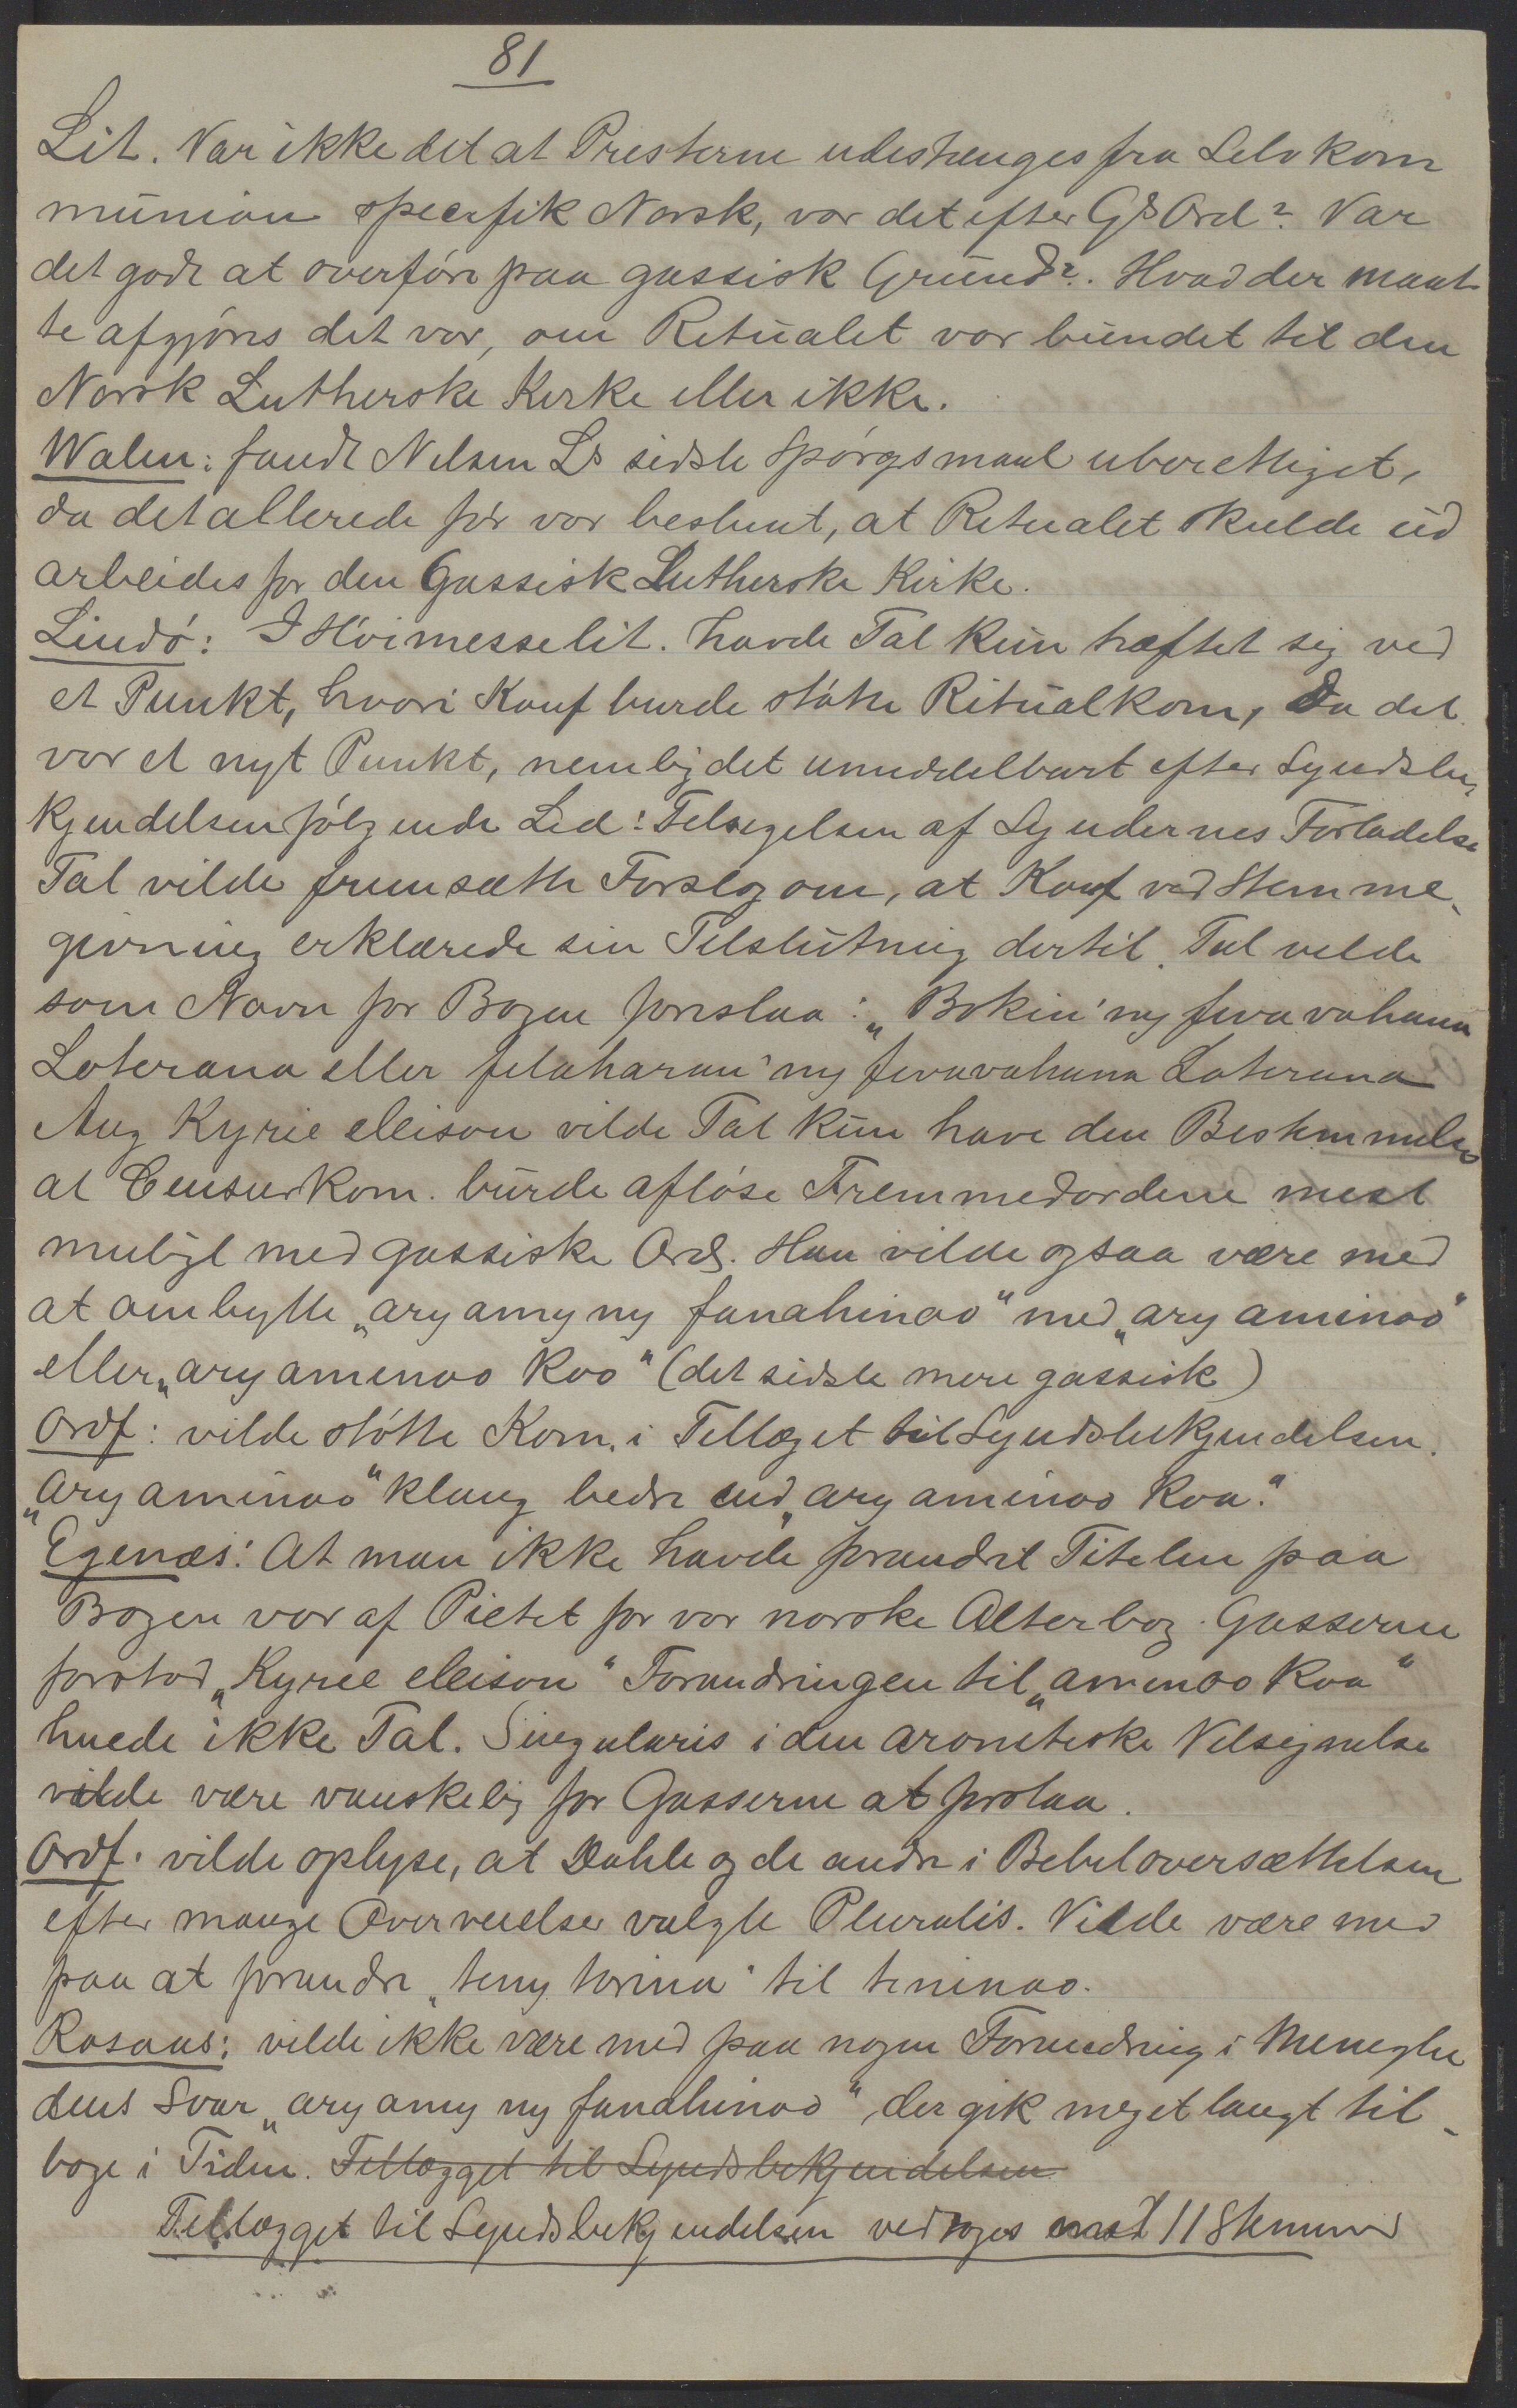 81
Lit. Var ikke det at Presterne udestænges fra Selvkom
munion specifik Norsk, var det efter Gs Ord? Var
det godt at overføre paa gassisk Grund?. Hvad der maat
te afgjøres det var, om Ritualet var bundet til den
Norsk Lutherske Kirke eller ikke.
Walen: fandt Nilsen Ls sidste Spørgsmaal uberettiget,
da det allerede før var bestemt, at Ritualet skulde ud
arbeides for den Gassisk Lutherske Kirke.
Lindø: I Høimesselit. havde Tal kun hæftet sig ved
et Punkt, hvori Konf burde støtte Ritualkom, da det
var et nyt Punkt, nemlig det umiddelbart efter Syndsbe,
kjendelsen følgende Led: Tilsigelsen af Syndernes Forladelse
Tal vilde fremsætte Forslag om, at Konf ved Stemme,
givning erklærede sin Tilslutning dertil. Tal vilde
som Navn for Bogen foreslaa: „Bokin' ny fivavahana
Loterana eller filaharan' ny fivavahana Loterana
Ang Kyrie eleison vilde Tal kun have den Bestemmelse
at Censurkom. burde afløse Fremmedordene mest
muligt med gassiske Ord. Han vilde ogsaa være med
at ombytte „ary amy ny fanahinao" med „ary aminao"
eller „ary aminao koo" (det sidste mere gassisk)
Ordf: vilde støtte Kom. i Tillæget til Syndsbekjendelsen.
„ary aminao" klang bedre end „ary aminao koa."
Egenæs: At man ikke havde forandret Titelen paa
Bogen var af Pietet for vor norske Alterbog. Gasserne
forstod „Kyrie eleison" Forandringen til „aminao koa"
huede ikke Tal. Singularis i den aronitiske Velsignelse
vilde være vanskelig for Gasserne at forstaa.
Ordf. vilde oplyse, at Dahle og de andre i Bibeloversættelsen
efter mange Overveielser valgte Pluralis. Vilde være med
paa at forandre „teny torina" til teninao.
Rosaas: vilde ikke være med paa nogen Forandring i Menighe
dens Svar „ary amy ny fanahinao", der gik meget langt til-
bage i Tiden. Tillægget til Syndsbekjendelsen
Tillægget til Syndsbekjendelsen vedtoges med 11 Stemmer